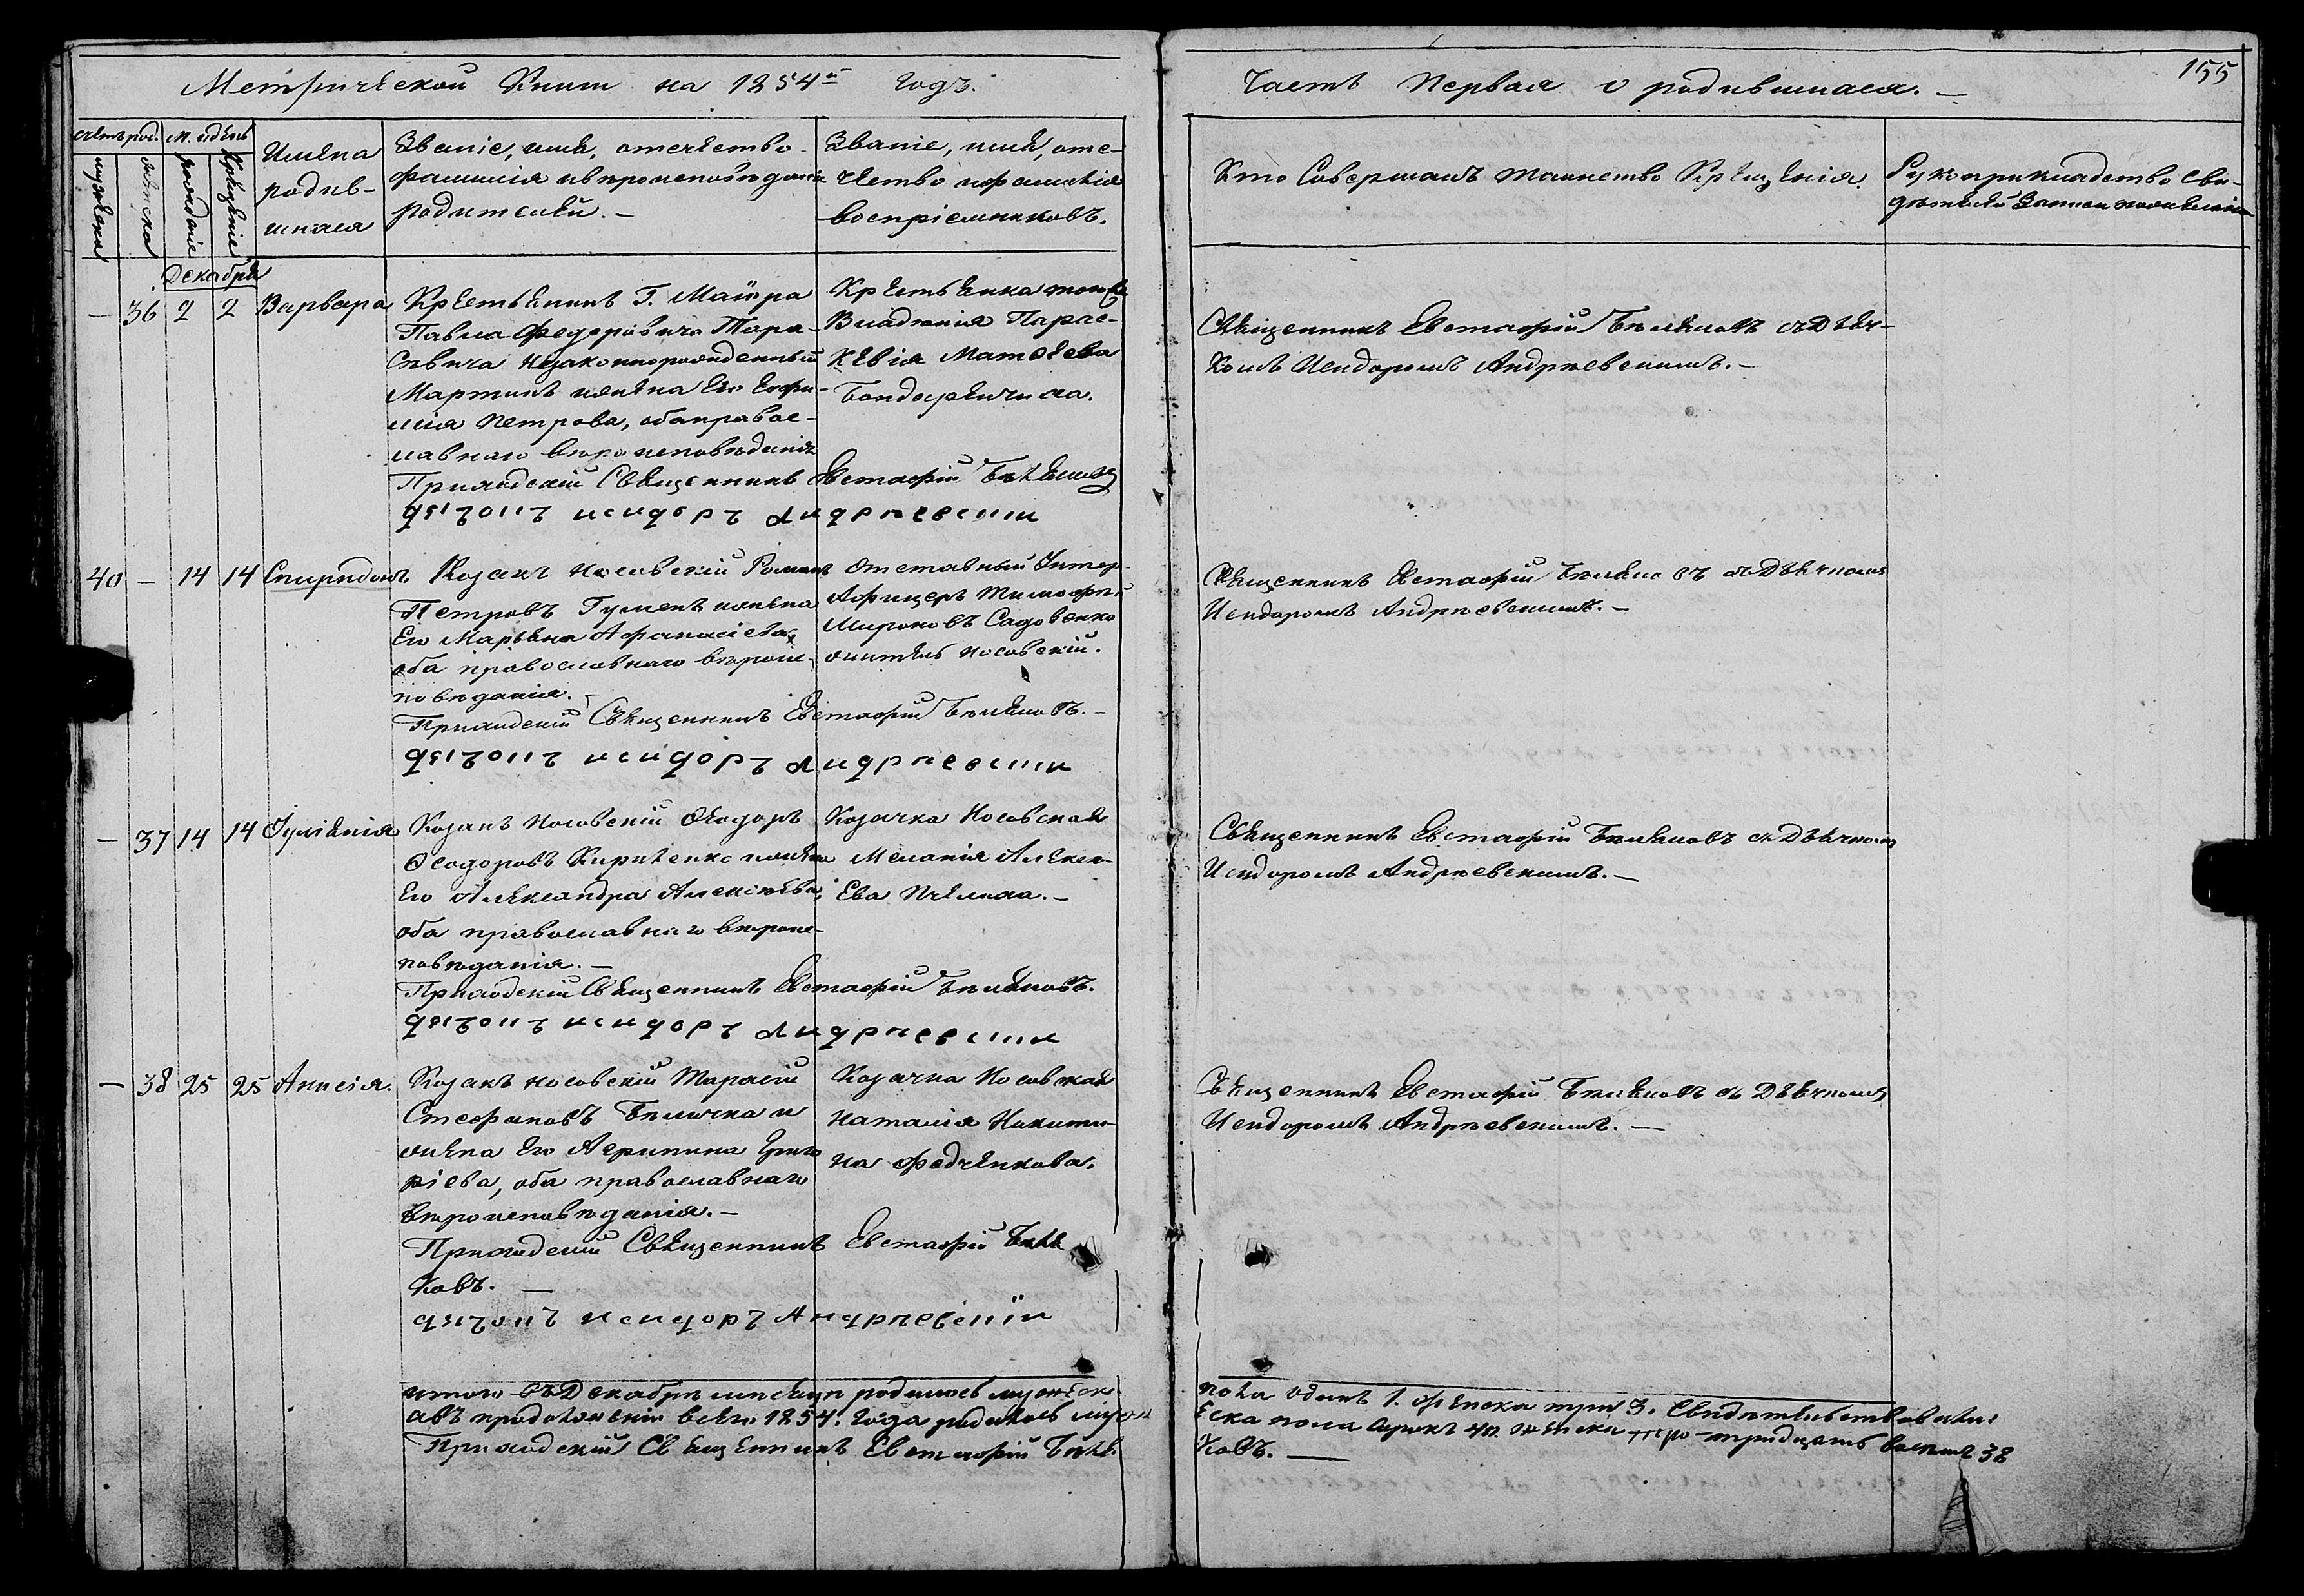 Метрической Книги на 1854й Годъ.
Часть Первая о родившихся. —
155
счетъ род.
М. и день
мужеска
женска
рожденіе
крещеніе
Имена
родив-
шихся
Званіе, имя, отечество
фамилія и вероисповѣданія
родителей. —
Званіе, имя, оте-
чество и фамилія
воспріемниковъ.
Кто Совершалъ таинство Крещенія.
Рукоприкладство сви-
дѣтелей Записи по желанію
Декабрь
— 36 2 2 Варвара
Крестьянинъ Г. Маіора
Павла Федоровича Тара-
севича незаконнорожденный
Мартинъ и жена Его Евфи-
мія Петрова, оба правос-
лавнаго вѣроисповѣданія
Приходскій Священникъ Евстафій Бѣляковъ
дячокъ исидоръ Андріевскій
Крестьянка того же
Владѣнія Парас-
кевія Матѳеева
Бондаревичива.
Священникъ Евстафій Бѣляковъ съ Дьяч-
комъ Исидоромъ Андріевскимъ. —
40 — 14 14 Спиридонъ
Козакъ Носовскій Романъ
Петровъ Гуменъ и жена
Его Марьяна Афанасіева,
оба православнаго вѣроис-
повѣданія.
Приходскій Священникъ Евстафій Бѣляковъ. —
дячокъ исидоръ Андріевскій
Отставный Унтер-
Афицеръ Тимофѣй
Мироновъ Садовенко
житель Носовскій.
Священникъ Евстафій Бѣляковъ съ Дьячкомъ
Исидоромъ Андріевскимъ. —
— 37 14 14 Іуліанія
Козакъ Носовскій Ѳеодоръ
Ѳеодоровъ Кириенко и жена
Его Александра Алексѣева,
оба православнаго вѣроис-
повѣданія. —
Приходскій Священникъ Евстафій Бѣляковъ.
дячокъ исидоръ Андріевскій
Козачка Носовская
Меланія Алексѣ-
Ева Пчелина. —
Священникъ Евстафій Бѣляковъ съ Дьячкомъ
Исидоромъ Андріевскимъ. —
— 38 25 25 Анисія.
Козакъ носовскій Тарасій
Стефановъ Билычка и
жена Его Агрипина Григо
ріева, оба православнаго
вѣроисповѣданія. —
Приходскій Священникъ Евстафій Бѣля
ковъ. —
дячокъ исидоръ Андріевскій
Козачка Носовская
Наталія Никити-
на Федченкова.
Священникъ Евстафій Бѣляковъ съ Дьячкомъ
Исидоромъ Андріевскимъ. —
итого въ Декабрѣ мѣсяцѣ родилось мужеск
пола одинъ 1. женска три 3. Свидѣтельствовали:
а въ продолженіи всего 1854. Года родилось муж
еска пола сорокъ 40 женска тридцать восемь 38
Приходскій Священникъ Евстафій Бѣля
ковъ. —